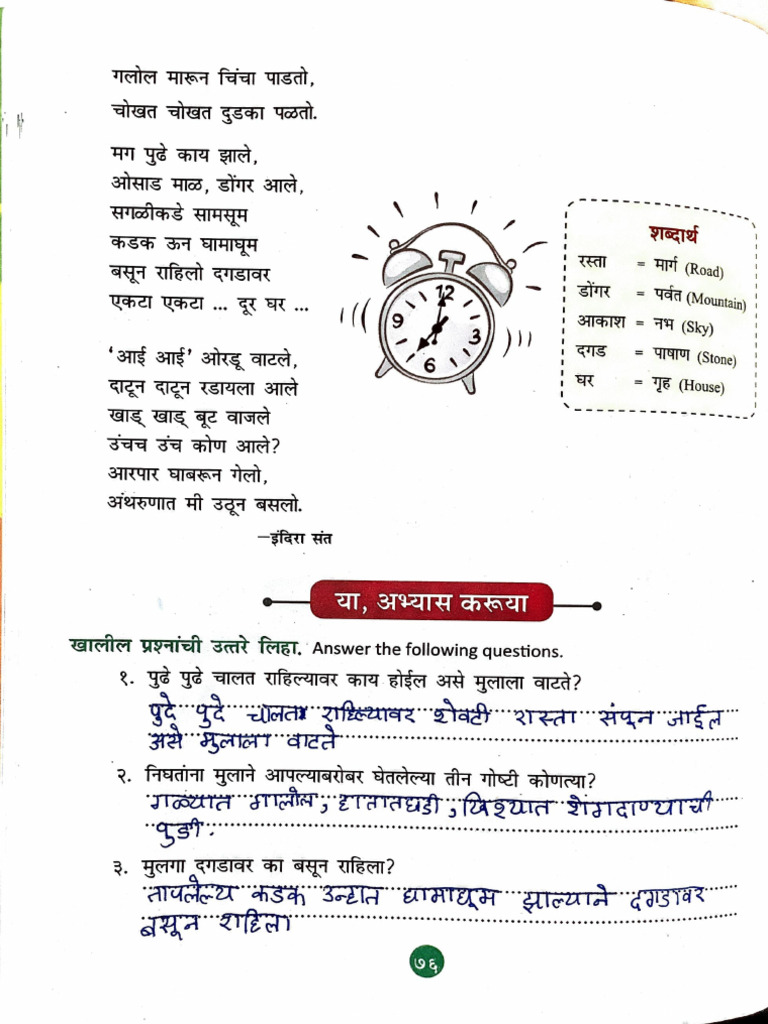 गलोल मारून चिंचा पाडतो,
चोखत चोखत दुडका पळतो.
मग पुढे काय झाले,
ओसाड माळ, डोंगर आले,
सगळीकडे सामसूम
कडक ऊन घामाघूम
बसून राहिलो दगडावर
एकटा एकटा ... दूर घर ...
‘आई आई’ ओरडू वाटले,
दाटून दाटून रडायला आले
खाड् खाड् बूट वाजले
उंचच उंच कोण आले?
आरपार घाबरून गेलो,
अंथरुणात मी उठून बसलो.
–इंदिरा संत
12
9
3
6
शब्दार्थ
रस्ता = मार्ग (Road)
डोंगर = पर्वत (Mountain)
आकाश = नभ (Sky)
दगड = पाषाण (Stone)
घर = गृह (House)
या, अभ्यास करूया
खालील प्रश्नांची उत्तरे लिहा. Answer the following questions.
१. पुढे पुढे चालत राहिल्यावर काय होईल असे मुलाला वाटते?
पुदे पुदे चालत राहिल्यावर शेवटी रास्ता संपून जाईल
असे मुलाला वाटते
२. निघतांना मुलाने आपल्याबरोबर घेतलेल्या तीन गोष्टी कोणत्या?
गळ्यात गालोल, हातातघडी, खिश्यात शेंगदाण्याची
पुडी.
३. मुलगा दगडावर का बसून राहिला?
तापलेल्य कडक उन्हात घामाघूम झाल्याने दगडावर
बसून राहिला
७६